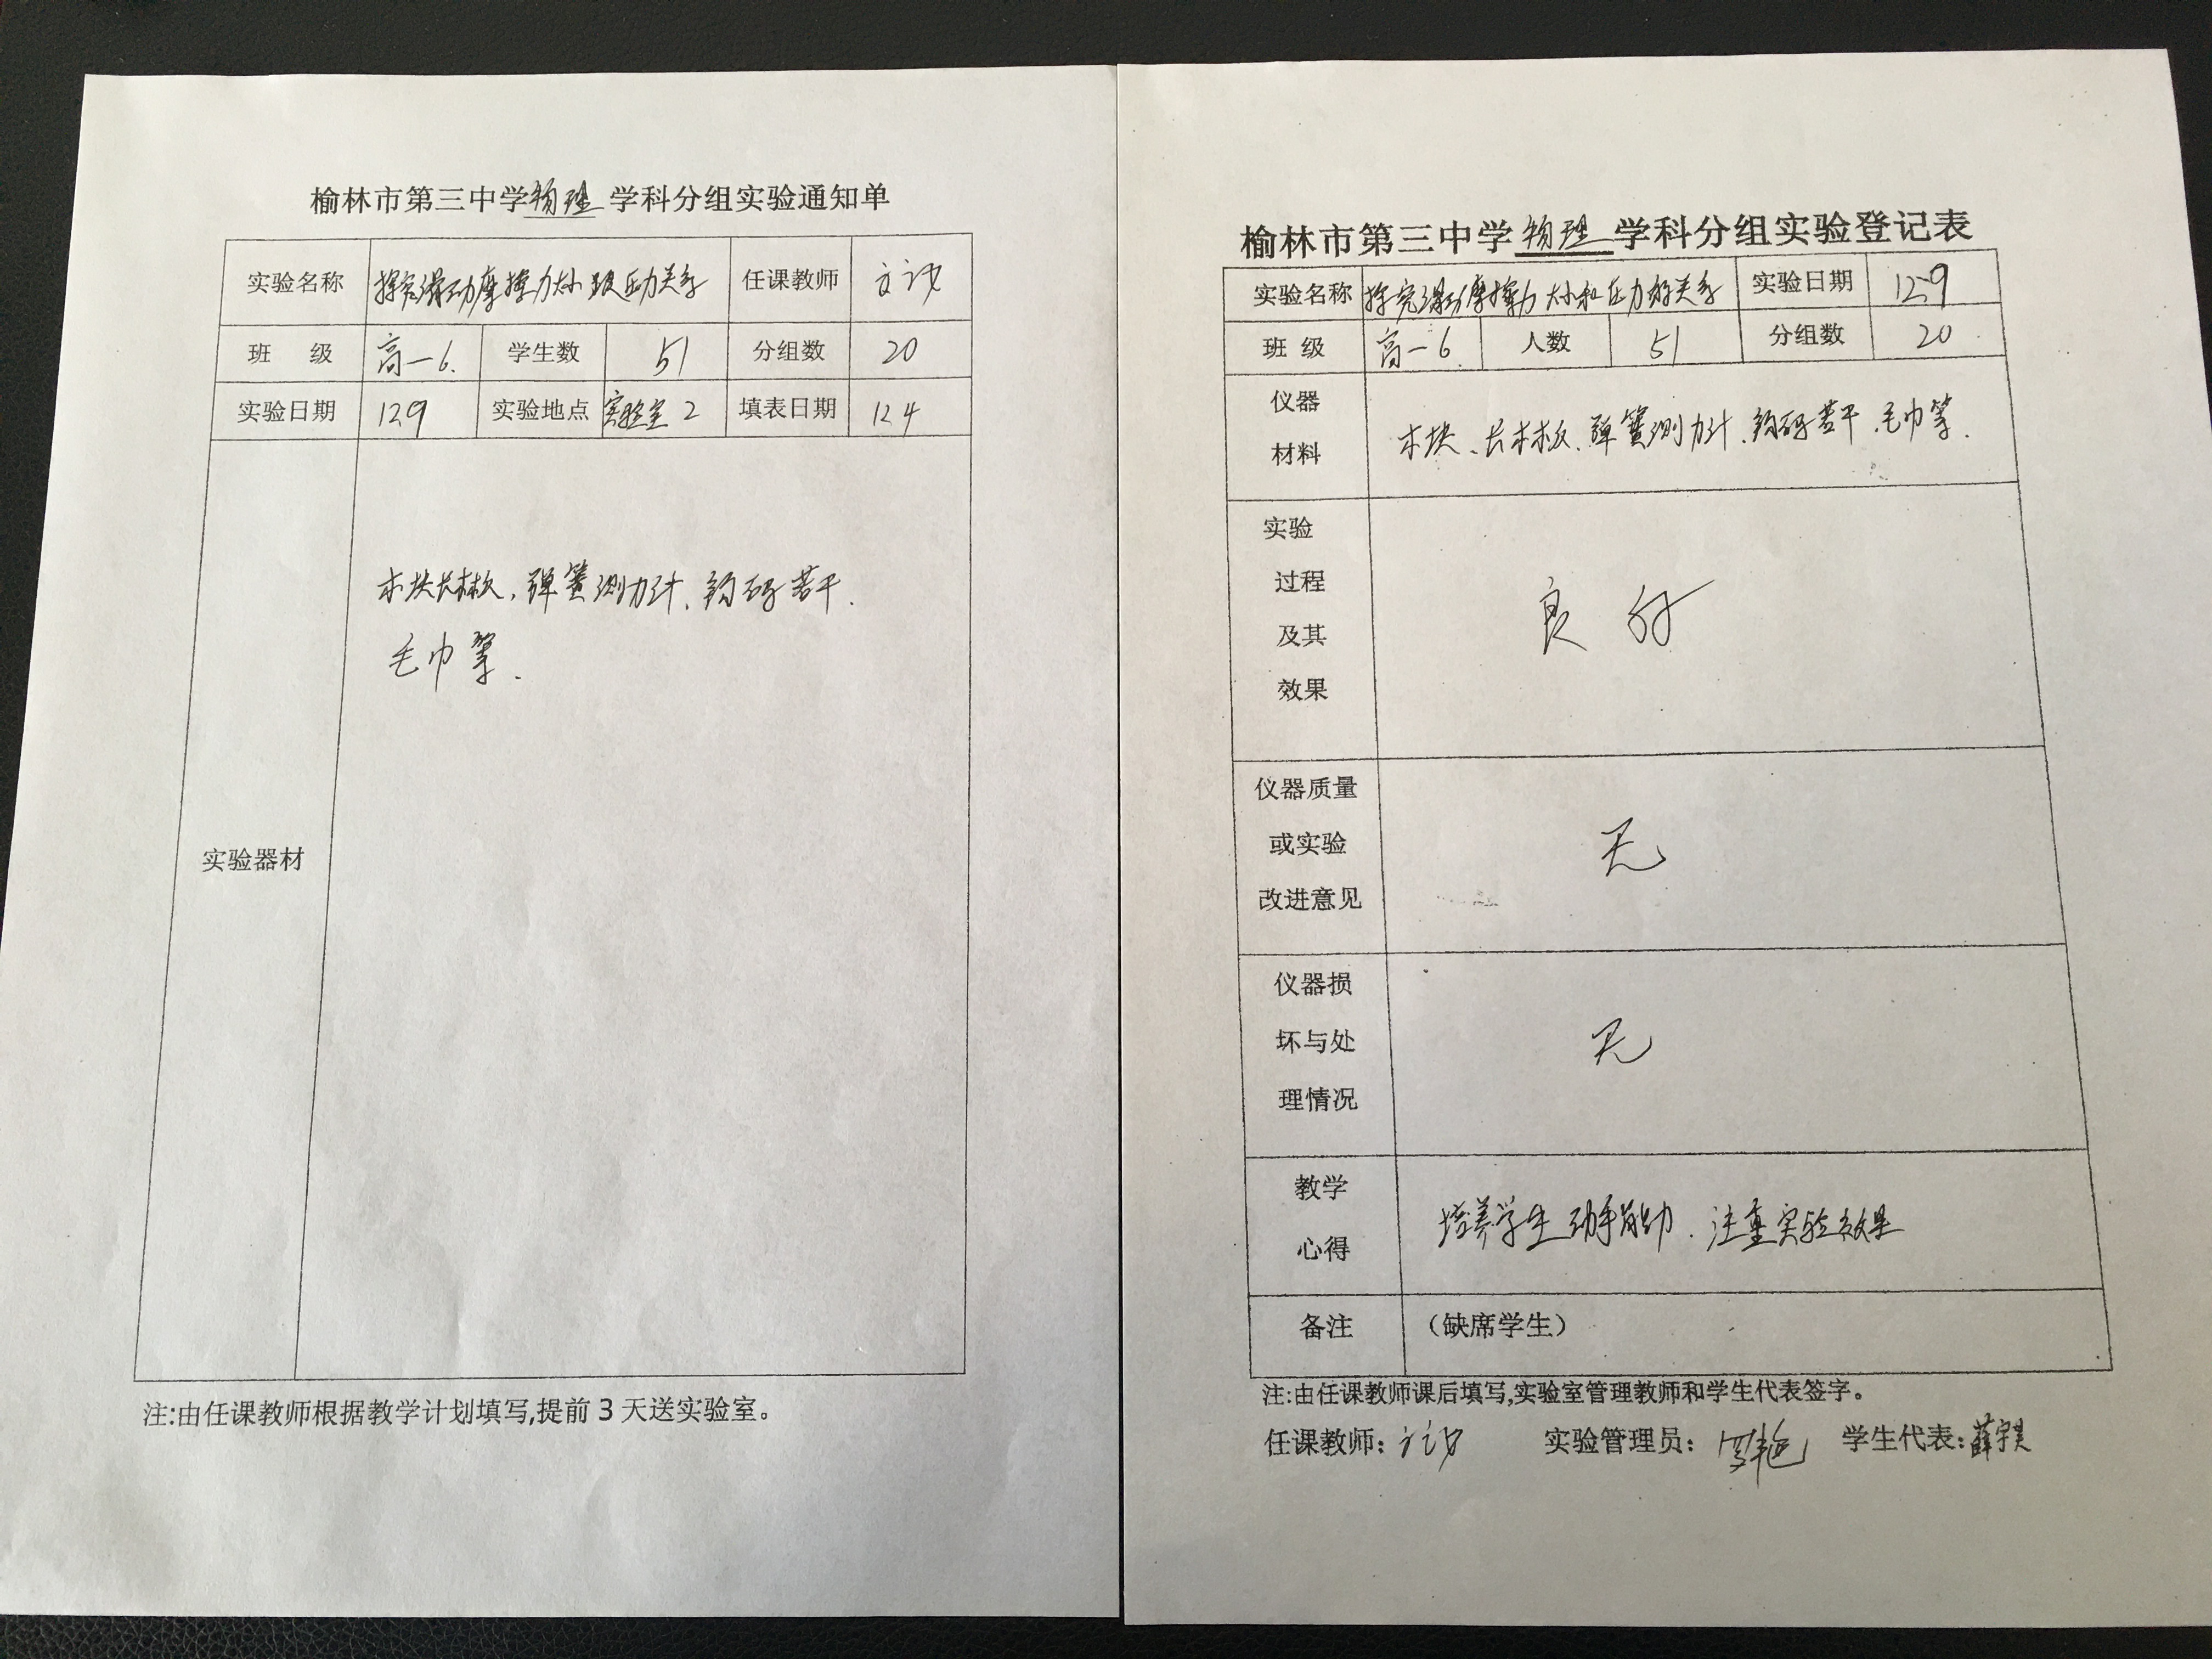 榆林市第三中学物理学科分组实验通知单
实验名称 探究滑动摩擦力大小跟压力关系 任课教师
班 级 高一6. 学生数 51 分组数 20
实验日期 12.9 实验地点 实验室2 填表日期 12.4
实验器材
木块长木板、弹簧测力计、钩码若干、
毛巾等.
注:由任课教师根据教学计划填写,提前3天送实验室。
榆林市第三中学物理学科分组实验登记表
实验名称 探究滑动摩擦力大小和压力的关系 实验日期 12.9
班 级 高一6. 人数 51 分组数 20
仪器
材料
木块、长木板、弹簧测力计、钩码若干、毛巾等.
实验
过程
及其
效果
良好
仪器质量
或实验
改进意见
无
仪器损
坏与处
理情况
无
教学
心得
培养学生动手能力、注重实验效果
备注 （缺席学生）
注:由任课教师课后填写,实验室管理教师和学生代表签字。
任课教师: 实验管理员: 学生代表: